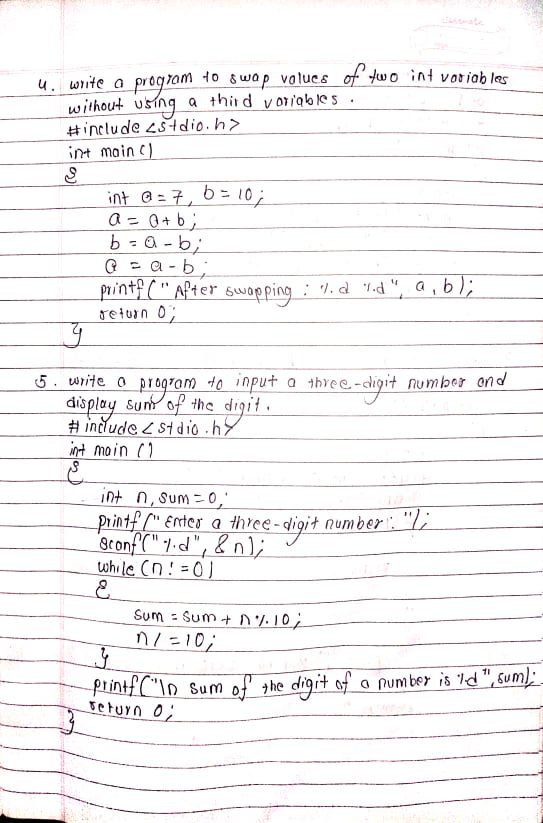 classmate
4. write a program to swap values of two int variables
without using a third variables.
#include <stdio.h>
int main()
{
int a = 7, b = 10;
a = a + b;
b = a - b;
a = a - b;
printf("After swapping : %d %d", a, b);
return 0;
}
5. write a program to input a three-digit number and
display sum of the digit.
#include <stdio.h>
int main ()
{
int n, sum = 0;
printf("Enter a three-digit number: ");
scanf("%d", &n);
while (n! = 0)
{
sum = sum + n % 10;
n / = 10;
}
printf("\n sum of the digit of a number is %d", sum);
return 0;
}